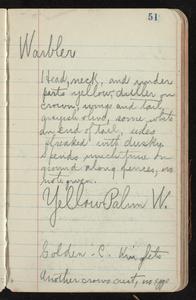 51
Warbler
Head, neck, and under
parts yellow, duller on
crown, wings and tail,
grayish olive, some white
on end of tail, sides
streaked with dusky.
Spends much time on
ground along fences, no
note given.
Yellow Palm W.
Golden-C. Kinglets
Another crows nest, no eggs